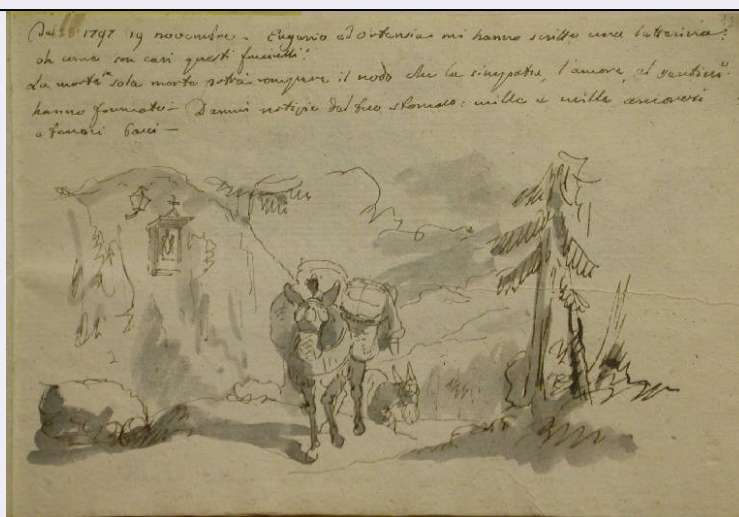 Del 1797 19 novembre. Eugenio ed Ortensia mi hanno scritto una letterina:
oh come son cari questi fanciulli!
La morte sola morte potrà rompere il nodo che la simpatia, l'amore, ed
hanno formato – Dammi notizie del tuo stomaco: mille e mille amorosi
e teneri baci –